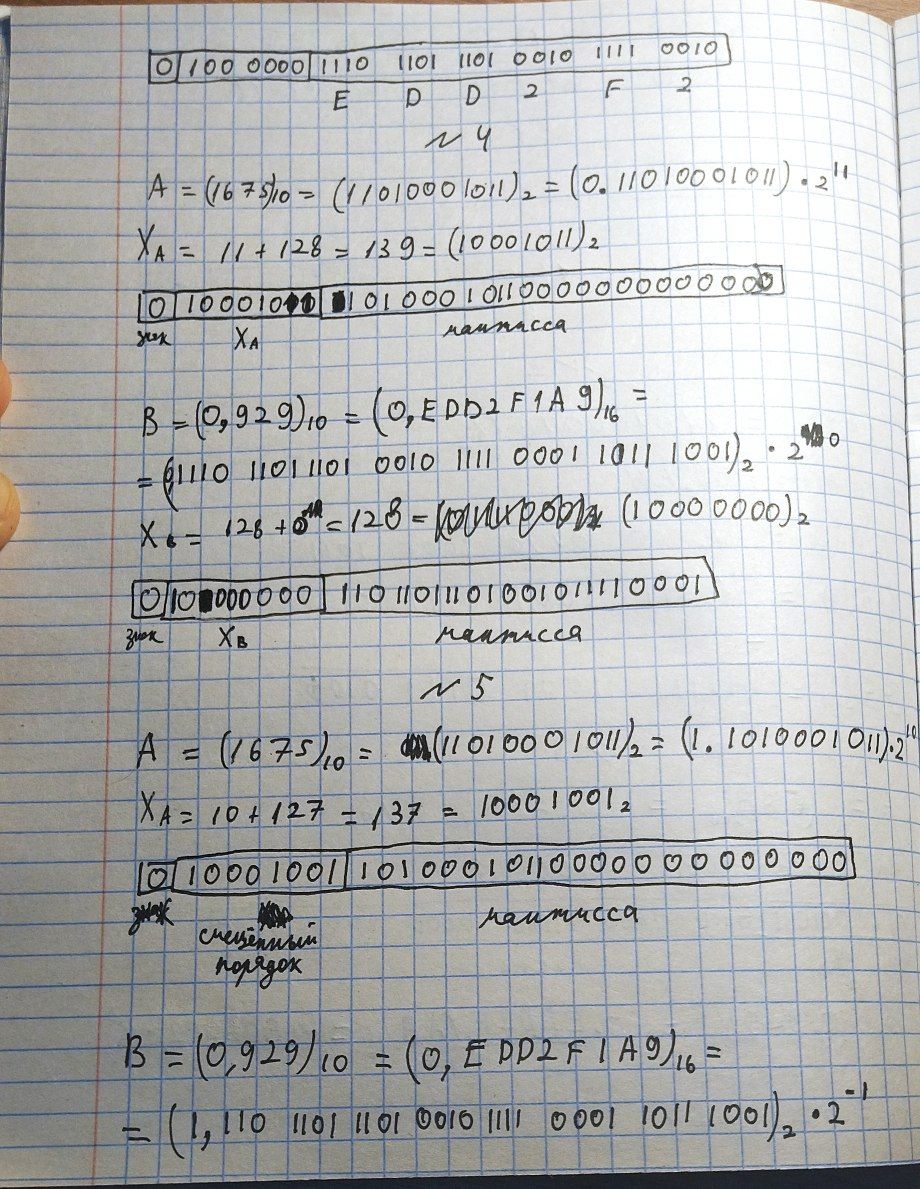 0 100 0000 1110 1101 1101 0010 1111 0010
E D D 2 F 2
№ 4
A = (1675)10 = (11010001011)2 = (0.11010001011) · 2^11
XA = 11 + 128 = 139 = (10001011)2
0 100010 1010001011000000000000
знак XA мантисса
B = (0,929)10 = (0,EDD2F1A9)16 =
= (0,1110 1101 1101 0010 1111 0001 1011 1001)2 · 2^0
XB = 128 + 0 = 128 = (10000000)2
0 10000000 11011011101001011110001
знак XB мантисса
№ 5
A = (1675)10 = (11010001011)2 = (1.1010001011) · 2^10
XA = 10 + 127 = 137 = 100010012
0 10001001 10100010110000000000000
знак смещённый мантисса
порядок
B = (0,929)10 = (0,EDD2F1A9)16 =
= (1,110 1101 1101 0010 1111 0001 1011 1001)2 · 2^-1